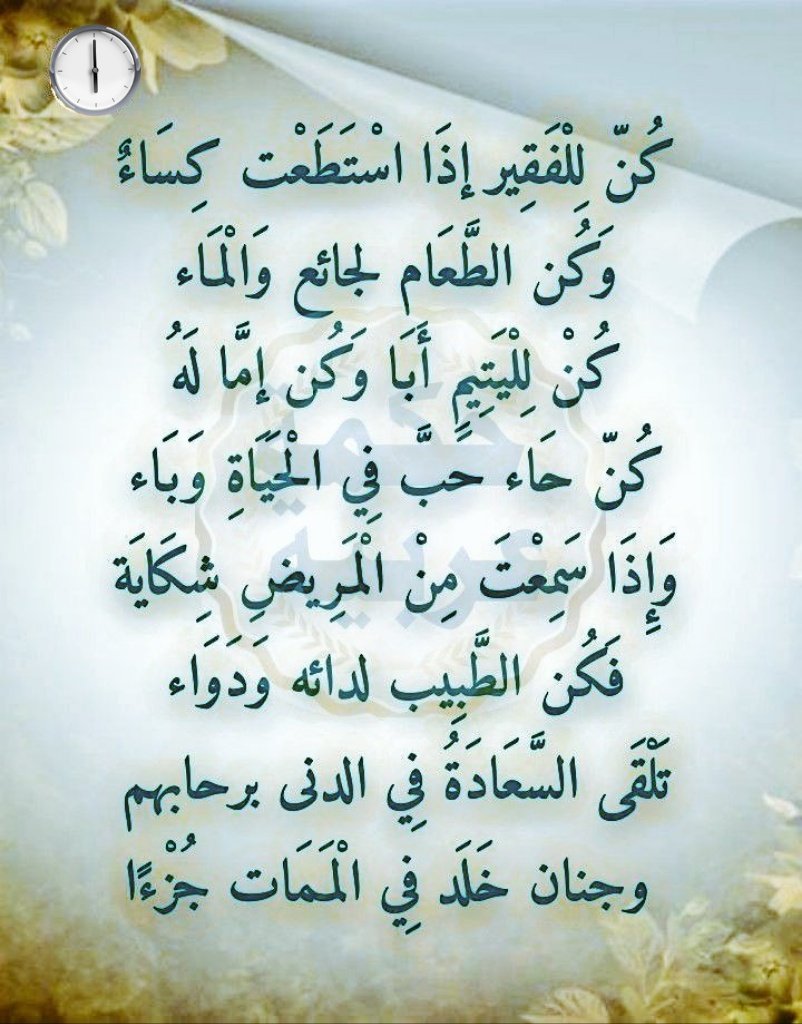 كُنّ لِلْفَقِير إذَا اسْتَطَعْت كِسَاءٌ
وَكُن الطَّعَام لجائع وَالْمَاء
كُنْ لِلْيَتِيمِ أَبَا وَكُن إمَّا لَهُ
كُنّ حَاء حَبَّ فِي الْحَيَاةِ وَبَاء
وَإِذَا سَمِعْتَ مِنْ الْمَرِيضِ شِكَايَة
فَكُن الطَّبِيب لدائه وَدَوَاء
تَلْقَى السَّعَادَةُ فِي الدنى برحابهم
وجنان خَلَد فِي الْمَمَات جُزْءًا
حكمة
عربية